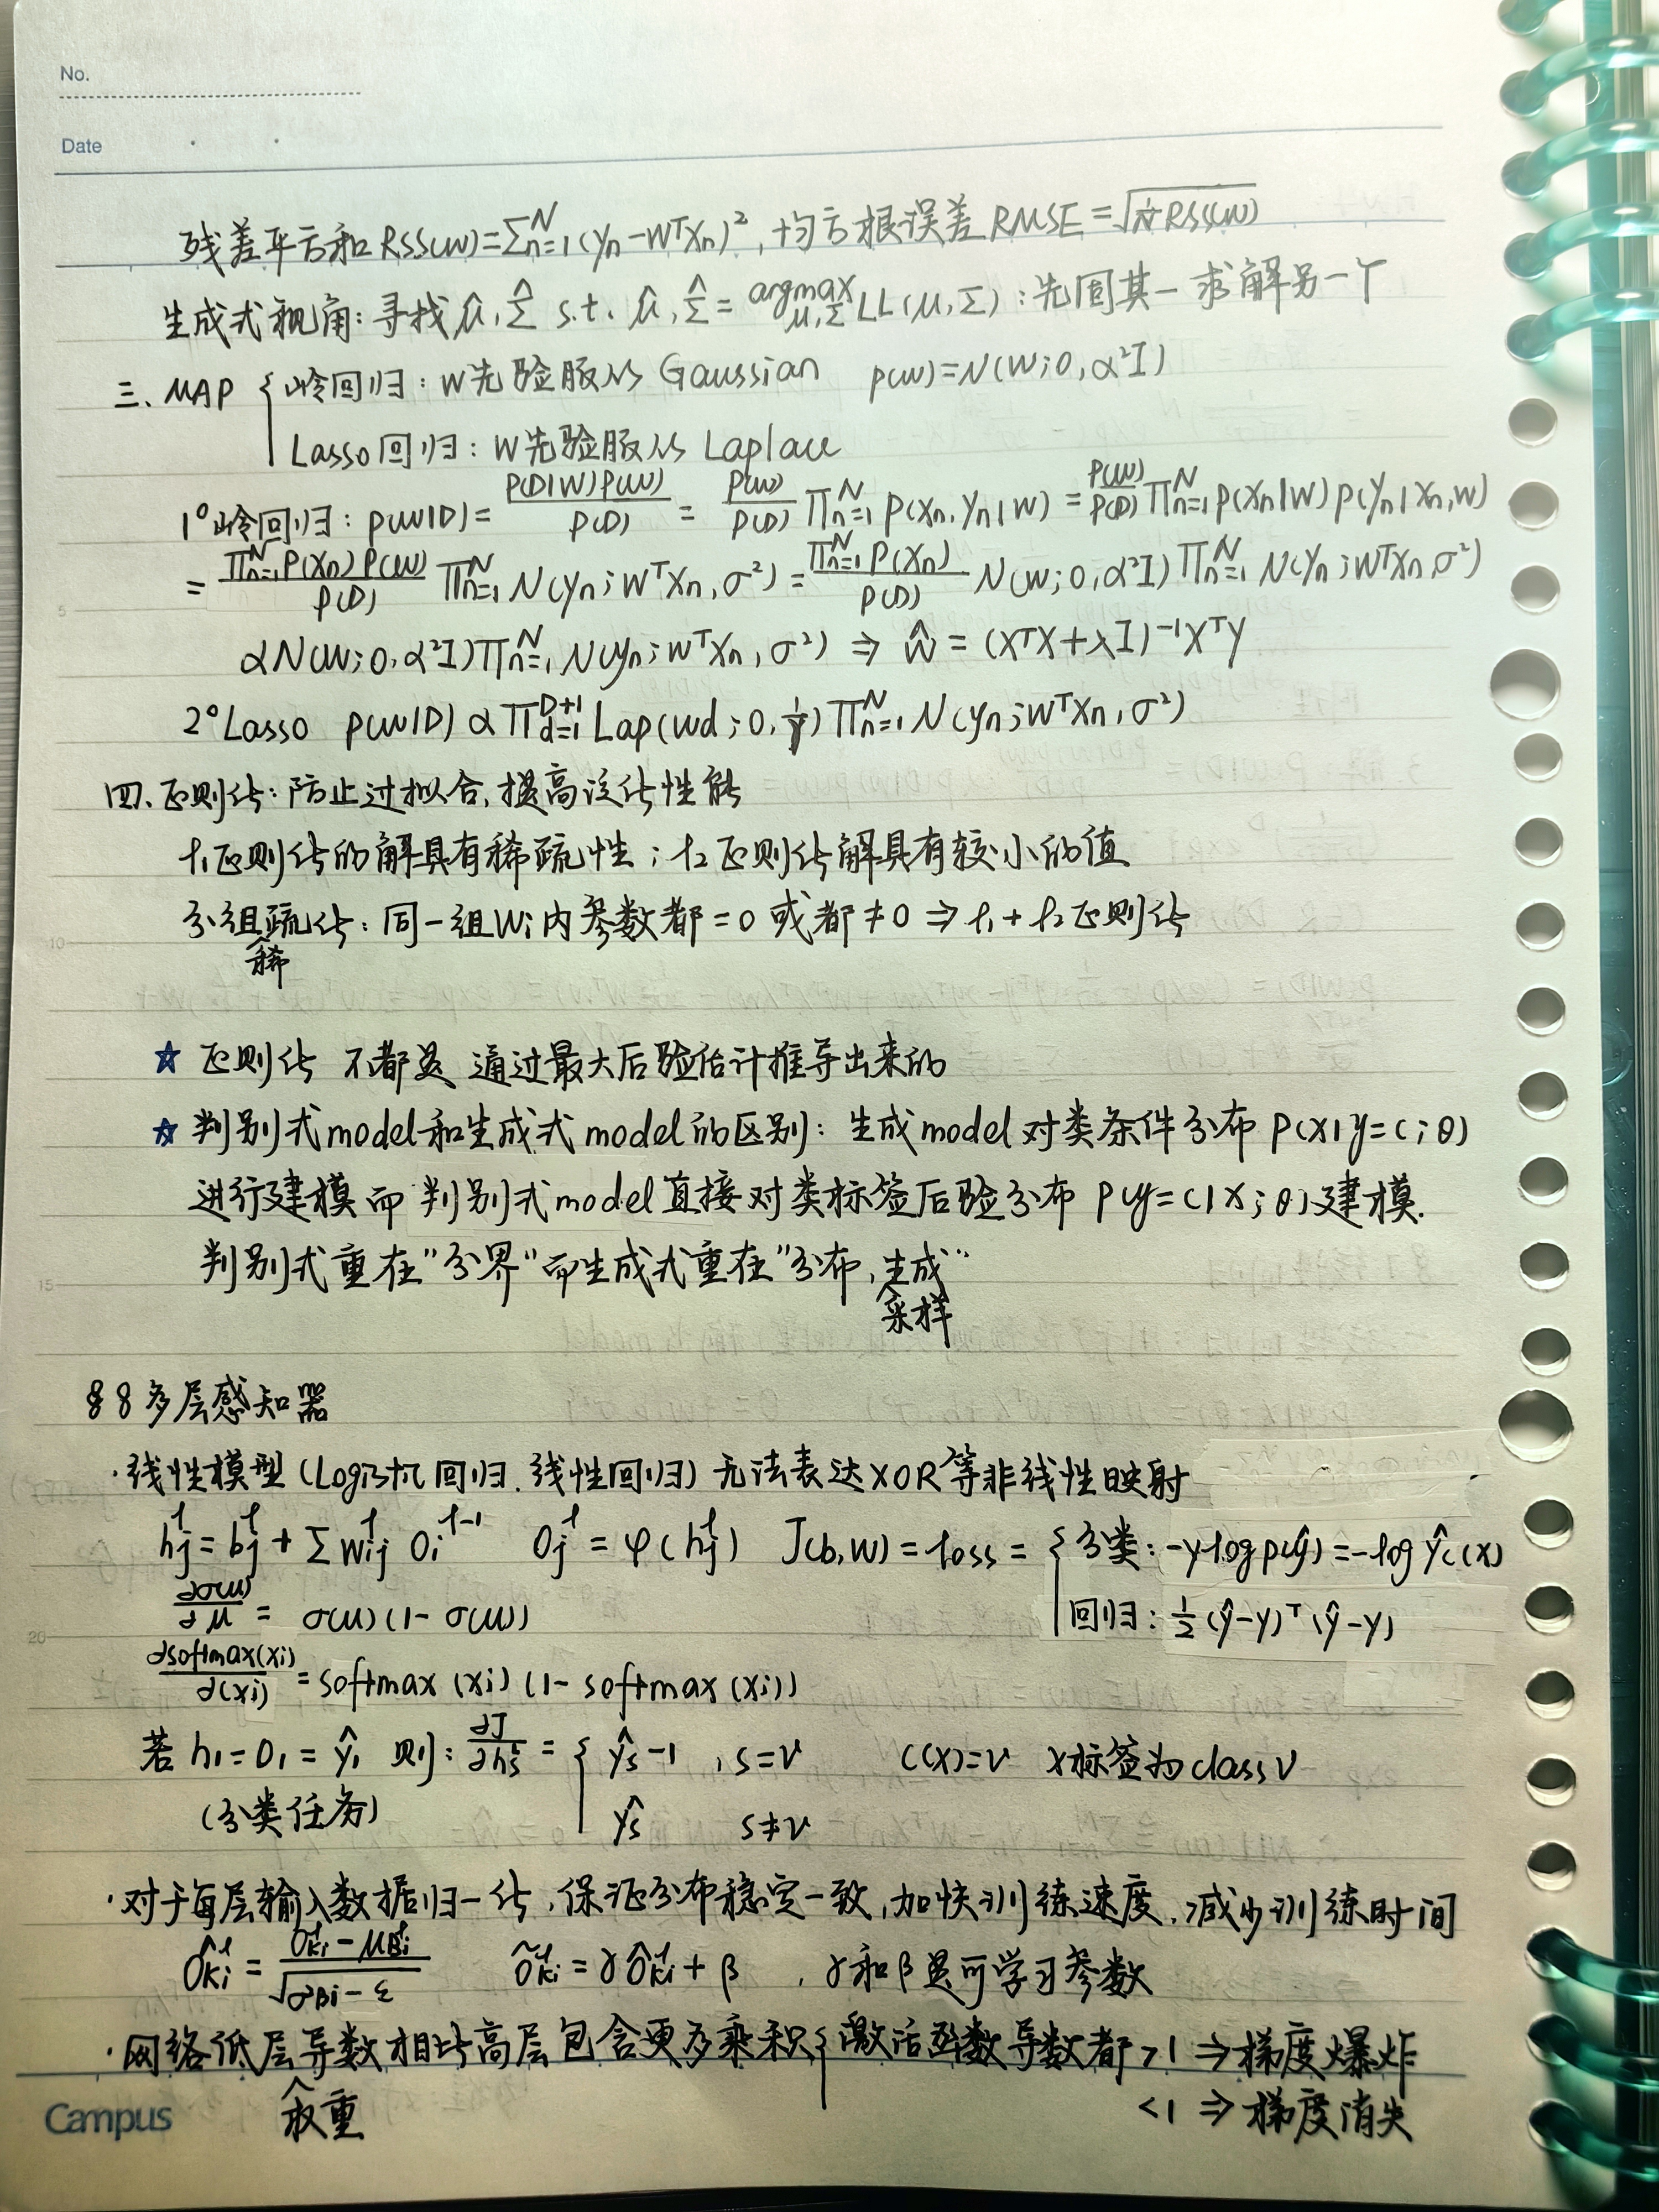 No.
Date
残差平方和 RSS(w)=∑ₙ₌₁ᴺ(yₙ-wᵀxₙ)², 均方根误差 RMSE=√(1/N RSS(w))
生成式视角: 寻找 μ̂, Σ̂ s.t. μ̂, Σ̂ = argmax μ,Σ LL(μ,Σ): 先固其一 求解另一个
三、MAP { 岭回归: w先验服从 Gaussian p(w)=N(w;0,α²I)
Lasso回归: w先验服从 Laplace
1° 岭回归: p(w|D)= P(D|w)P(w)/P(D) = P(w)/P(D) ∏ₙ₌₁ᴺ p(xₙ,yₙ|w) = P(w)/P(D) ∏ₙ₌₁ᴺ p(xₙ|w)p(yₙ|xₙ,w)
= ∏ₙ₌₁ᴺP(xₙ)P(w)/P(D) ∏ₙ₌₁ᴺ N(yₙ;wᵀxₙ,σ²) = ∏ₙ₌₁ᴺP(xₙ)/P(D) N(w;0,α²I) ∏ₙ₌₁ᴺ N(yₙ;wᵀxₙ,σ²)
∝N(w;0,α²I)∏ₙ₌₁ᴺ N(yₙ;wᵀxₙ,σ²) ⇒ ŵ = (XᵀX+λI)⁻¹Xᵀy
2° Lasso p(w|D) ∝ ∏_{d=1}^{D+1} Lap(wd;0,1/γ)∏ₙ₌₁ᴺ N(yₙ;wᵀxₙ,σ²)
四、正则化: 防止过拟合, 提高泛化性能
ℓ₁正则化的解具有稀疏性; ℓ₂正则化解具有较小的值
分组稀疏化: 同一组wᵢ内参数都=0 或都≠0 ⇒ ℓ₁+ℓ₂正则化
☆ 正则化 不都是 通过最大后验估计推导出来的
☆ 判别式model和生成式model的区别: 生成model对类条件分布 P(x|y=c;θ)
进行建模 而 判别式model直接对类标签后验分布 P(y=c|x;θ)建模.
判别式重在"分界"而生成式重在"分布,采样生成"
§8 多层感知器
·线性模型(Logistic回归.线性回归) 无法表达XOR等非线性映射
hⱼˡ=bⱼˡ+∑wᵢⱼˡ oᵢˡ⁻¹ oⱼˡ=φ(hⱼˡ) J(b,w)=loss= { 分类: -ylogp(ŷ)=-logŷc(x)
回归: ½(ŷ-y)ᵀ(ŷ-y)
∂σ(μ)/∂μ = σ(μ)(1-σ(μ))
∂softmax(xi)/∂(xi) = softmax(xi)(1-softmax(xi))
若 h₁=o₁=ŷ₁ 则: ∂J/∂hs = { ŷs-1 , s=v c(x)=v x标签为class v
(分类任务) ŷs s≠v
·对于每层输入数据归一化,保证分布稳定一致,加快训练速度.减少训练时间
ôₖᵢˡ = (oₖᵢˡ-μBᵢˡ)/√(σ²Bi-ε) õₖᵢˡ=γôₖᵢˡ+β , γ和β是可学习参数
·网络低层权重导数相比高层包含更多乘积 { 激活函数导数都>1 ⇒梯度爆炸
<1 ⇒梯度消失
5
10
15
20
Campus